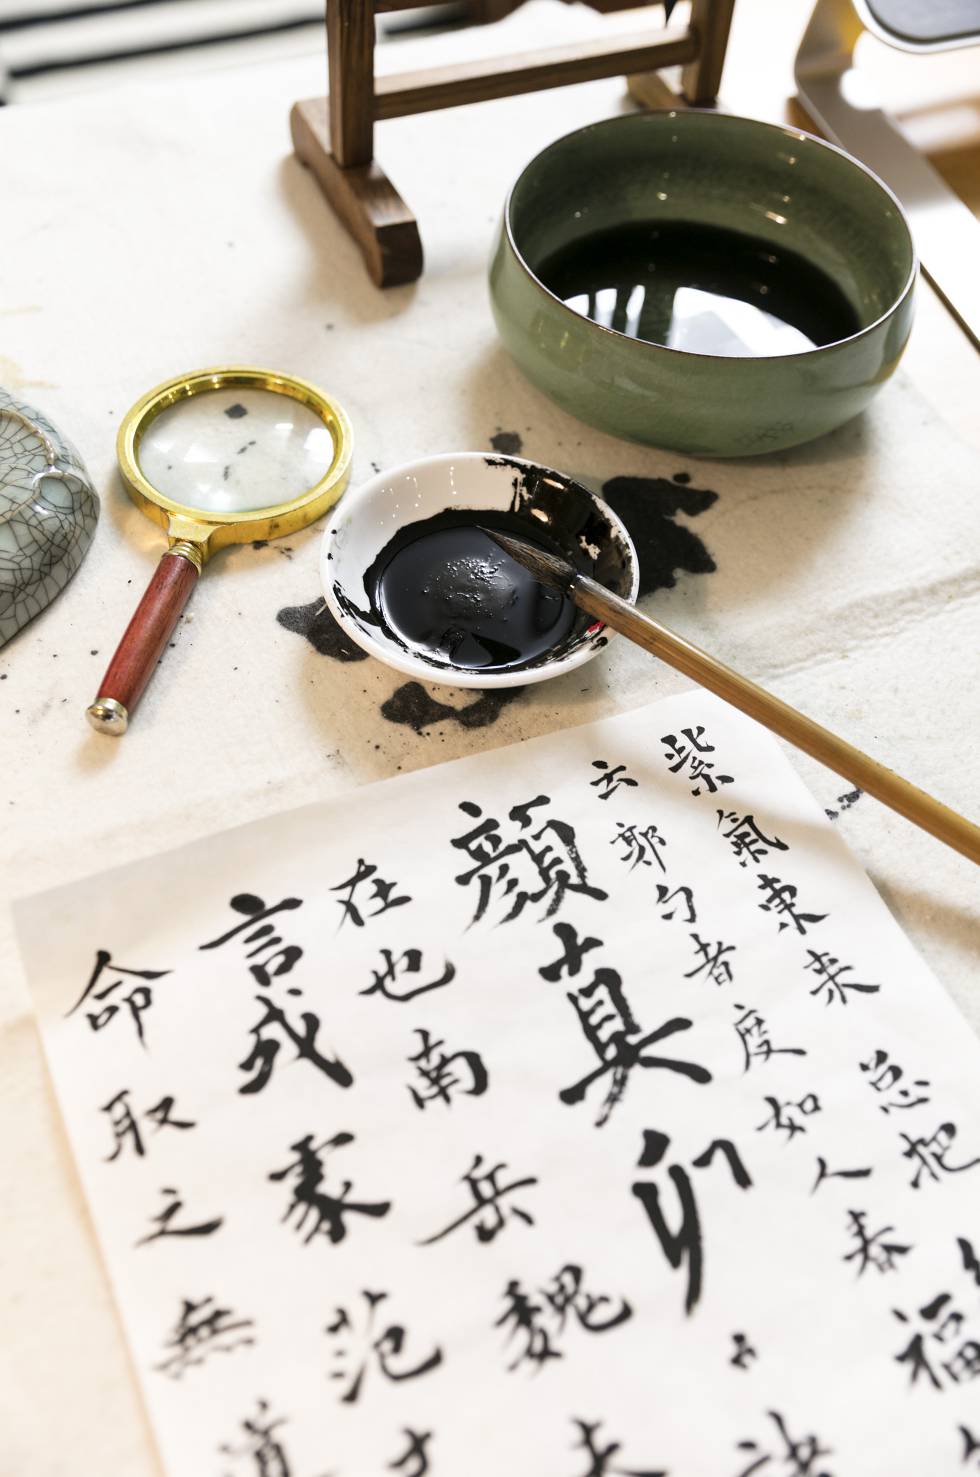 紫氣東来总把
云郭勹者度如人春福
顏真卿
在也南岳魏
言成家范
命取之無道